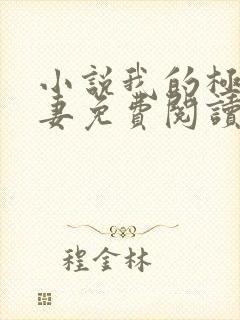 小說我的極
妻免費閱讀
程金林